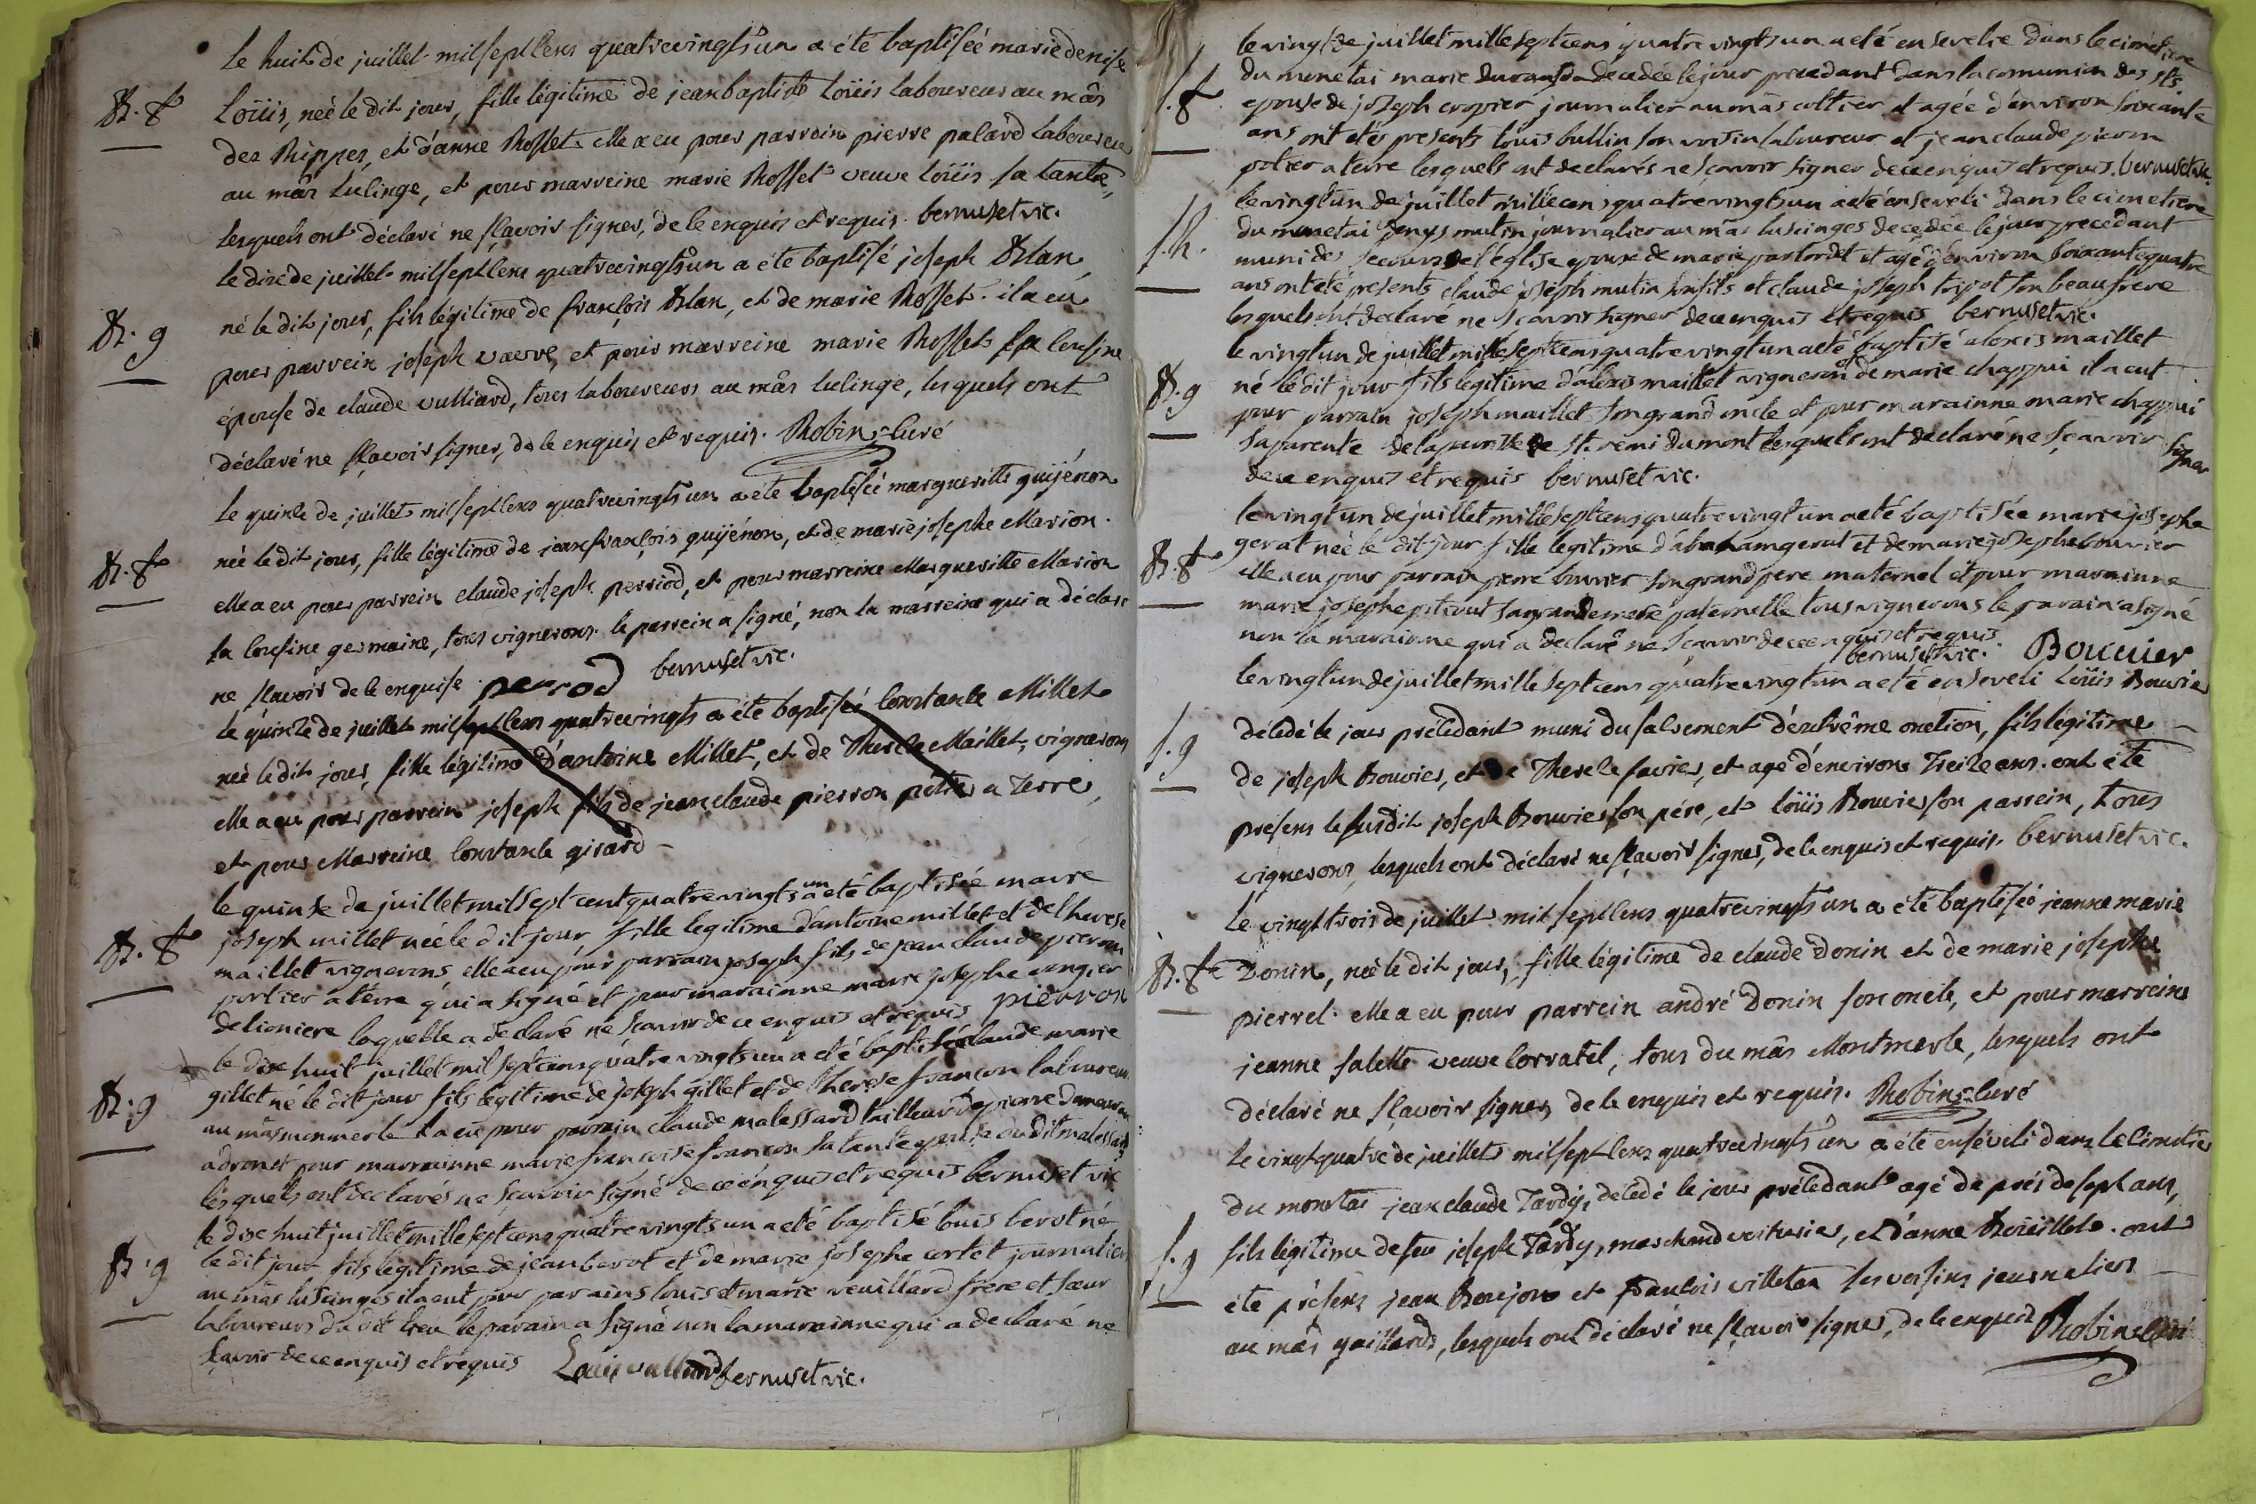 Le huit de juillet mil sept cens quatrevingts un a été baptisée marie denise
B. f
Loüis, neé le dit jour, fille légitime de jean baptiste Loüis laboureur au mâs
des Rippes, et d'anne Rosset. elle a eu pour parrein pierre palard laboureur
au mâs lulinge, et pour marreine marie Rosset veuve Loüis sa tante,
lesquels ont déclaré ne sçavoir signer, de ce enquis et requis. bernuset vic.
le dix de juillet mil sept cens quatrevingts un a été baptisé joseph Blan
B. g
né le dit jour, fils légitime de françois Blan, et de marie Rosset. il a eu
pour parrein joseph vaerve, et pour marreine marie Rosset sa cousine
épouse de claude vulliard, tous laboureurs au mâs lulinge, lesquels ont
déclaré ne sçavoir signer, de ce enquis et requis. Robin curé
Le quinze de juillet mil sept cens quatrevingts un a été baptisée marguerite guijénon
B. f
neé le dit jour, fille légitime de jean françois guijénon, et de marie josephe Marion.
elle a eu pour parrein claude joseph perriod, et pour marreine Marguerite Marion
sa cousine germaine, tous vignerons. le parrein a signé, non la marreine qui a déclaré
ne sçavoir de ce enquise. perrod bernuset vic.
Le quinze de juillet mil sept cens quatrevingts a été baptisée Constance Millet
neé le dit jour, fille légitime d'antoine Millet, et de Therese Maillet, vignerons
elle a eu pour parrein joseph fils de jean claude pierron potier a terre,
et pour Marreine Constance girard
le quinze de juillet mil sept cent quatrevingts un a été baptisée marie
B. f
joseph millet née le dit jour, fille legitime d'antoine millet et de therese
maillet vignerons elle a eu pour parrain joseph fils de jean claude pierron
portier a terre qui a signé et pour marainne marie josephe angier
de lioniere laquelle a declaré ne scavoir de ce enquis et requis pierron
le dix huit juillet mil sept cens quatre vingts un a eté baptisé claude marie
B. g
gillet né le dit jour fils legitime de joseph gillet et de therese françon laboureurs
au mâs monmerle il a eu pour parrain claude malessard tailleur de pierre demeurant
a dron et pour marrainne marie françoise françon sa tante epouse du dit malessard
lesquels ont declarés ne sçavoir signé de ce enquis et requis bernuset vic
le dix huit juillet mille sept cens quatre vingts un a eté baptisé louis berot né
B. g
le dit jour fils legitime de jean berot et de marie josephe cortet journaliers
au mâs luscinges il a eut pour parains louis et marie veuillard frere et sœur
laboureurs du dit lieu le parain a signé non la marainne qui a declaré ne
sçavoir de ce enquis et requis Louis vulliard bernuset vic.
le vingt de juillet mille sept cens quatre vingts un a eté ensevelie dans le cimetiere
du monetai marie durand decedée le jour precedant dans la comunion des sts.
S. f.
epouse de joseph cropier journalier au mâs coltier et agée d'environ soixante
ans ont etés presents louis bullin son voisin laboureur et jean claude pieron
potier a terre lesquels ont declarés ne sçavoir signer de ce enquis et requis. bernuset vic.
le vingt un de juillet mille cens quatre vingts un a eté enseveli dans le cimetiere
S. h.
du monetai denys mutin journalier au mâs luscinges decedée le jour precedant
muni des secours de l'église epoux de marie pastordet et agé d'environ soixante quatre
ans ont eté presents claude joseph mutin son fils et claude joseph tripot son beaufrere
lesquels ont declaré ne scavoir signer de ce enquis et requis bernuset vic.
le vingt un de juillet mille sept cens quatre vingt un a eté baptisé alexis maillet
B. g
né le dit jour fils legitime d'alexis maillet vigneron et de marie chappui il a eut
pour parrain joseph maillet son grand oncle et pour marainne marie chappui
sa parente de la paroisse de st. remi du mont lesquels ont declaré ne scavoir signer
de ce enquis et requis bernuset vic.
le vingt un de juillet mille sept cens quatre vingt un a eté baptisée marie josephe
B. f
gerat neé le dit jour fille legitime d'abraham gerat et de marie josephe bouvier
elle a eu pour parrain pierre bouvier son grand pere maternel et pour marainne
marie josephe pitiout sa grande mere paternelle tous vignerons le parain a signé
non la marainne qui a declaré ne scavoir de ce enquis et requis
bernuset vic. Bouvier
le vingt un de juillet mille sept cens quatre vingt un a eté enseveli Loüis Bouvier
S. g
décédé le jour précédant muni du sacrement d'extrême onction, fils légitime
de joseph Bouvier, et de Therese favier, et agé d'environ Treize ans. ont été
présens le susdit joseph Bouvier son pére, et loüis Bouvier son parrein, tous
vignerons, lesquels ont déclaré ne sçavoir signer, de ce enquis et requis. bernuset vic.
Le vingt trois de juillet mil sept cens quatrevingts un a été baptisée jeanne marie
B. fe
Donin, neé le dit jour, fille légitime de claude Donin et de marie josephe
pierrel. elle a eu pour parrein andré Donin son oncle, et pour marreine
jeanne salette veuve Corratel, tous du mâs Montmerle, lesquels ont
déclaré ne sçavoir signer de ce enquis et requis. Robin curé
Le vingt quatre de juillet mil sept cens quatrevingts un a été enséveli dans le cimetiere
du monetai jean claude Tardy, décédé le jour précédant agé de prés de sept ans,
S. g
fils légitime de feu joseph Tardy, marchand voiturier, et d'anne Boüillet. ont
été présens jean Boujon et francois villetan ses voisins journaliers
au mâs gaillard, lesquels ont déclaré ne sçavoir signer, de ce enquis Robin curé